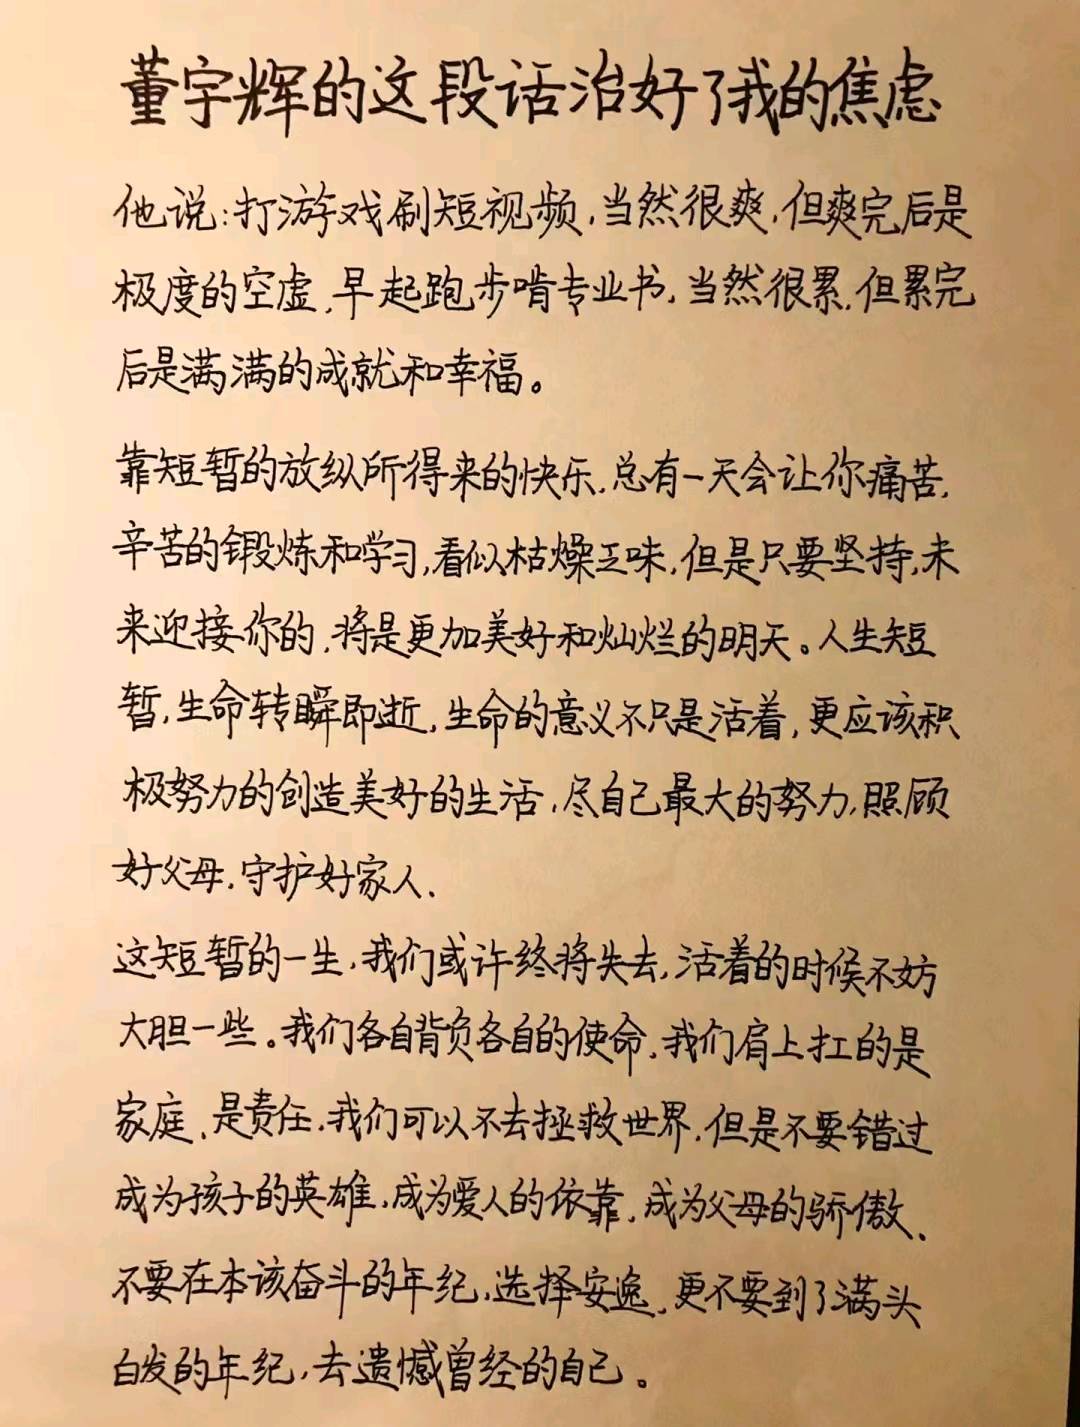 董宇辉的这段话治好了我的焦虑
他说:打游戏刷短视频,当然很爽,但爽完后是
极度的空虚,早起跑步啃专业书,当然很累,但累完
后是满满的成就和幸福。
靠短暂的放纵所得来的快乐,总有一天会让你痛苦,
辛苦的锻炼和学习,看似枯燥乏味,但是只要坚持,未
来迎接你的,将是更加美好和灿烂的明天。人生短
暂,生命转瞬即逝,生命的意义不只是活着,更应该积
极努力的创造美好的生活,尽自己最大的努力,照顾
好父母,守护好家人、
这短暂的一生,我们或许终将失去,活着的时候不妨
大胆一些。我们各自背负各自的使命,我们肩上扛的是
家庭、是责任,我们可以不去拯救世界,但是不要错过
成为孩子的英雄,成为爱人的依靠,成为父母的骄傲、
不要在本该奋斗的年纪,选择安逸,更不要到了满头
白发的年纪,去遗憾曾经的自己。